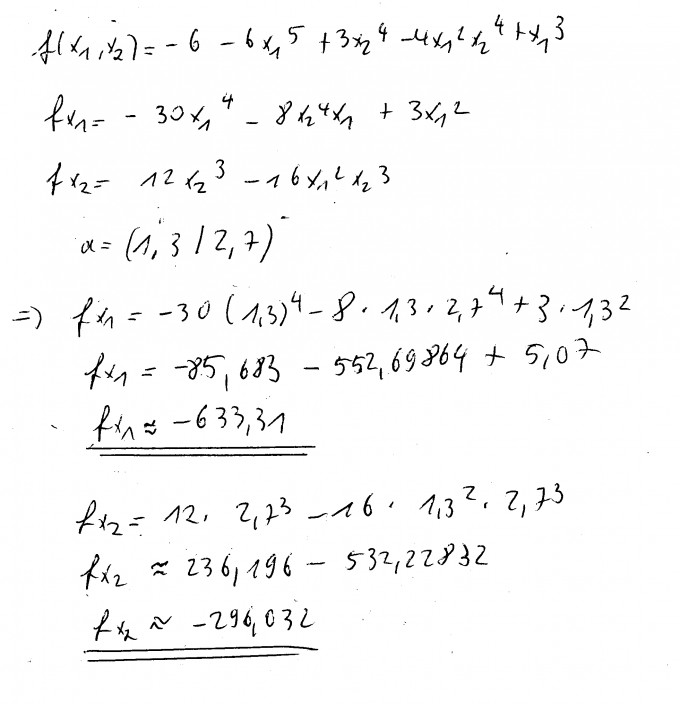 f(x₁,x₂) = - 6 - 6x₁⁵ + 3x₂⁴ - 4x₁²x₂⁴ + x₁³
fx₁ = - 30x₁⁴ - 8x₂⁴x₁ + 3x₁²
fx₂ = 12x₂³ - 16x₁²x₂³
a = (1,3 / 2,7)
=> fx₁ = -30(1,3)⁴ - 8 · 1,3 · 2,7⁴ + 3 · 1,3²
fx₁ = -85,683 - 552,69864 + 5,07
fx₁ ≈ -633,31
fx₂ = 12 · 2,7³ - 16 · 1,3² · 2,7³
fx₂ ≈ 236,196 - 532,22832
fx₂ ≈ -296,032